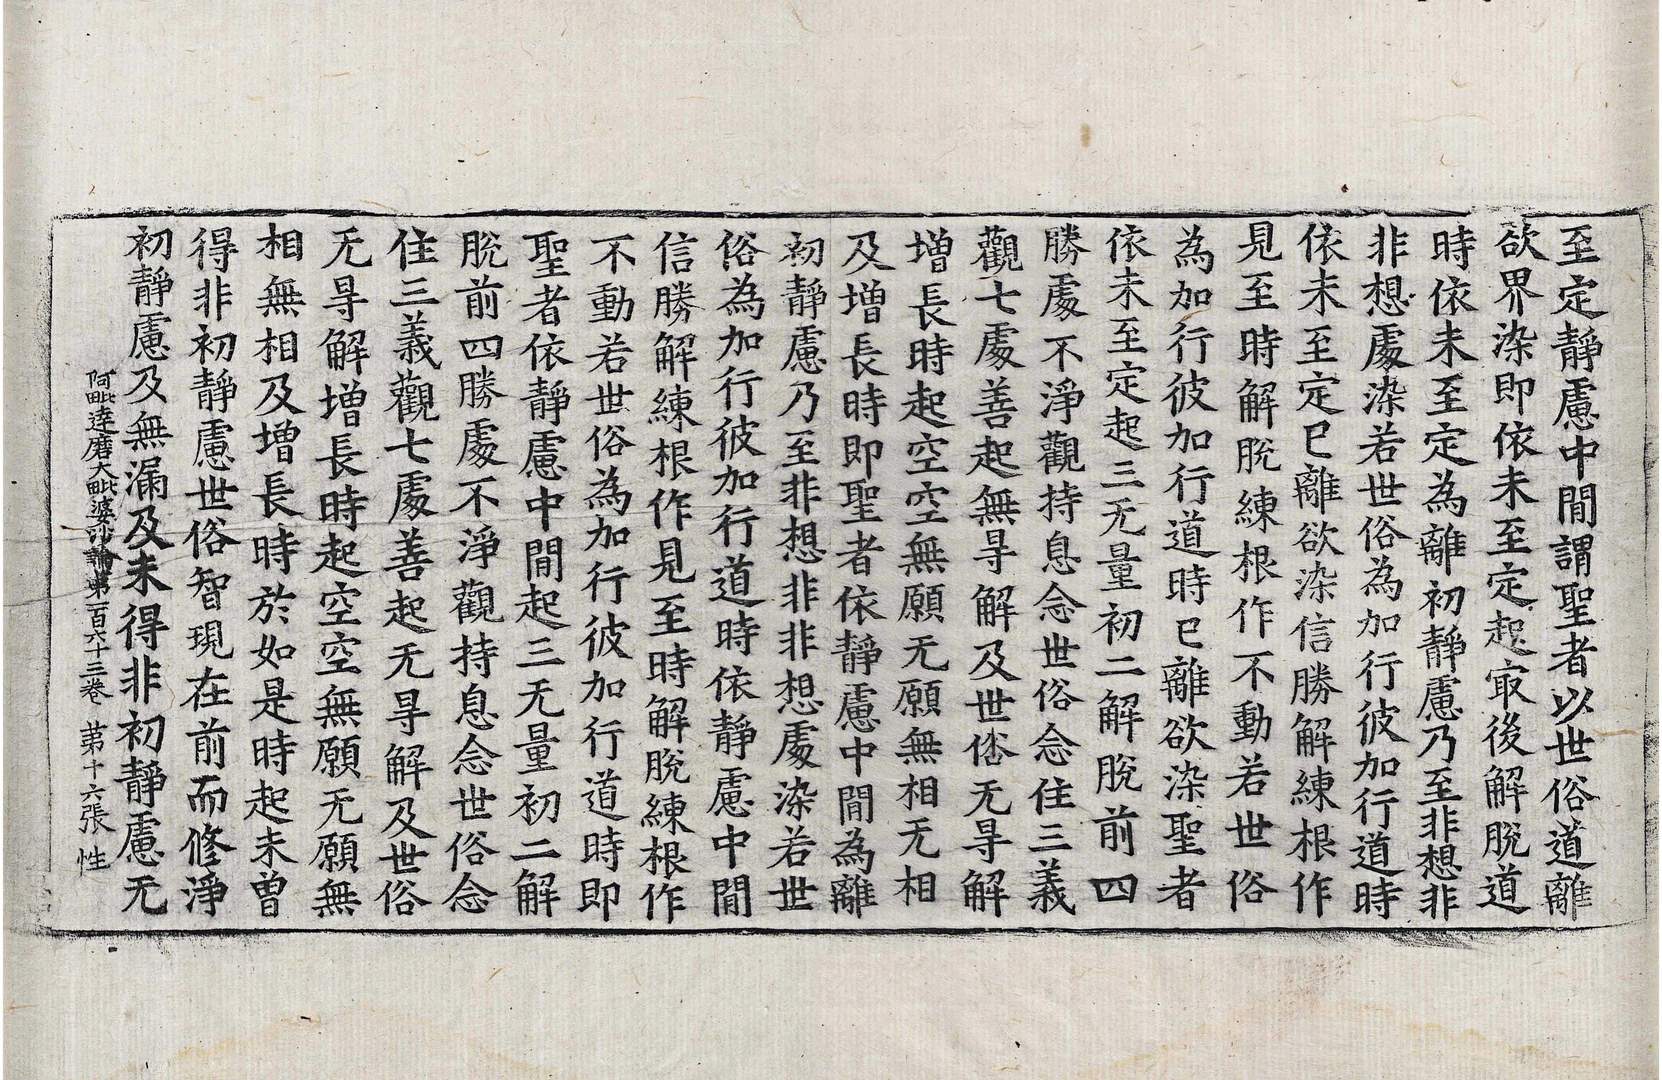 至定靜慮中閒謂聖者以世俗道離
欲界染即依未至定起㝡後解脫道
時依未至定為離初靜慮乃至非想非
非想處染若世俗為加行彼加行道時
依未至定已離欲染信勝解練根作
見至時解脫練根作不動若世俗
為加行彼加行道時已離欲染聖者
依未至定起三无量初二解脫前四
勝處不淨觀持息念世俗念住三義
觀七處善起無㝵解及世俗无㝵解
增長時起空空無願无願無相无相
及增長時即聖者依靜慮中閒為離
初靜慮乃至非想非非想處染若世
俗為加行彼加行道時依靜慮中閒
信勝解練根作見至時解脫練根作
不動若世俗為加行彼加行道時即
聖者依靜慮中閒起三无量初二解
脫前四勝處不淨觀持息念世俗念
住三義觀七處善起无㝵解及世俗
无㝵解增長時起空空無願无願無
相無相及增長時於如是時起未曾
得非初靜慮世俗智現在前而修淨
初靜慮及無漏及未得非初靜慮无
阿毗達磨大毗婆沙論第一百六十三卷 第十六張 性